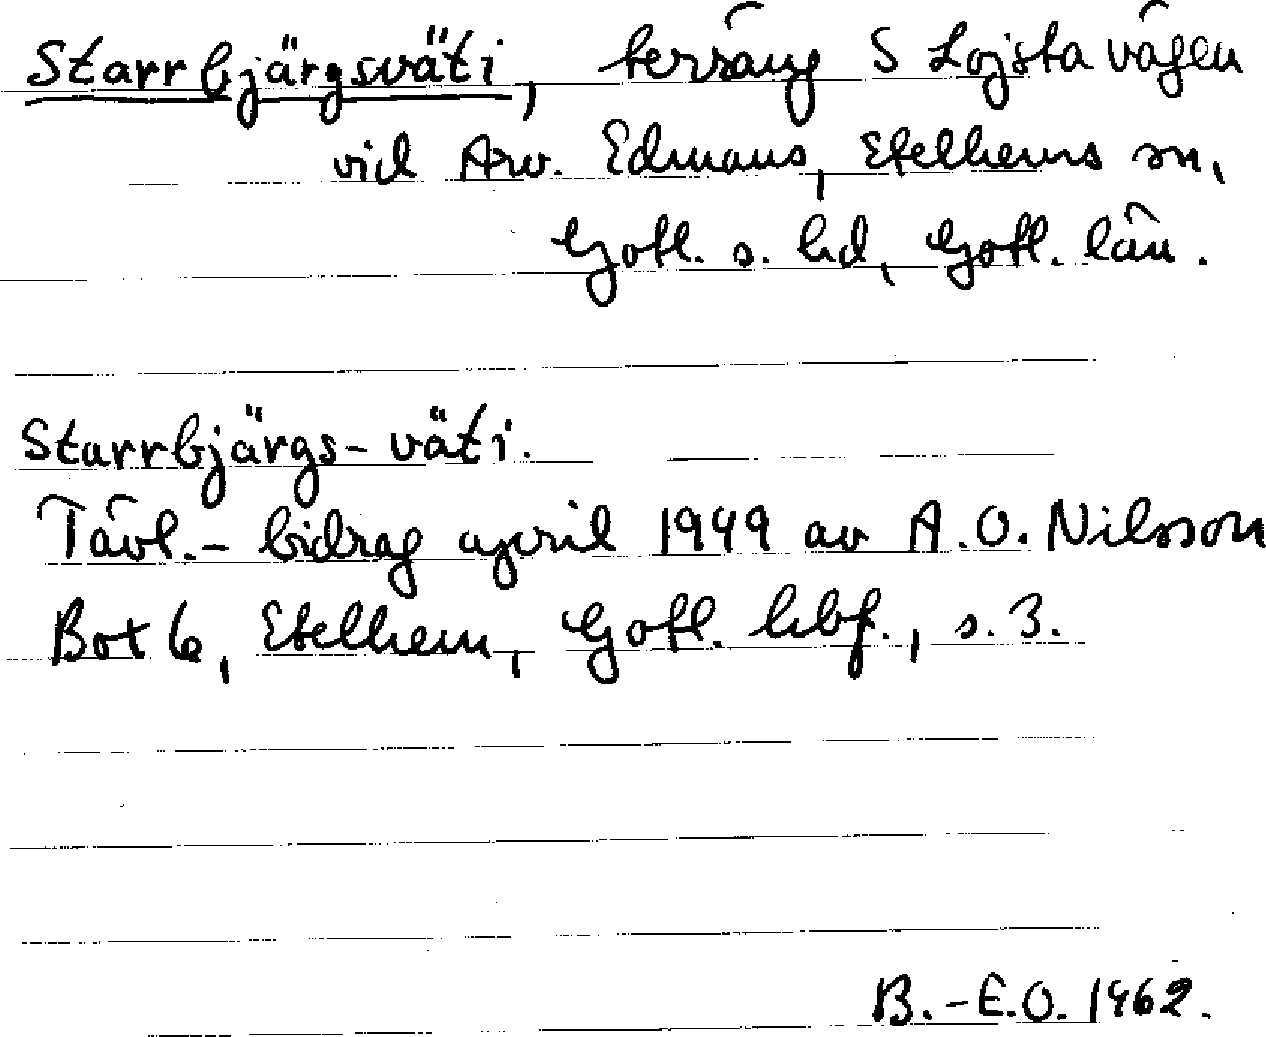 Starrbjärgsväti, terräng S Lojsta vägen
vid Arv. Edmans, Etelhems sn,
Gotl. s. hd, Gotl. län.
Starrbjärgs-väti.
Tävl.- bidrag april 1949 av A.O. Nilsson
Bot 6, Etelhem, Gotl. hbf., s. 3.
B.-E.O. 1962.